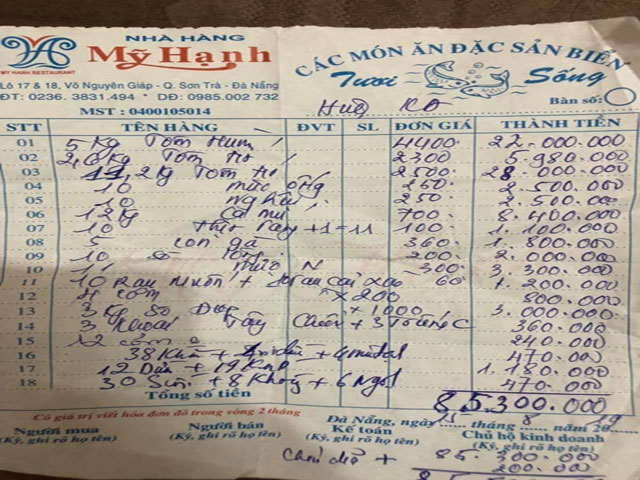 NHÀ HÀNG
Mỹ Hạnh
MY HANH RESTAURANT
CÁC MÓN ĂN ĐẶC SẢN BIỂN
Tươi Sống
Lô 17 & 18, Võ Nguyên Giáp - Q. Sơn Trà - Đà Nẵng
ĐT: 0236. 3831.494 * DĐ: 0985.002 732
Bàn số:
MST : 0400105014
STT TÊN HÀNG ĐVT SL ĐƠN GIÁ THÀNH TIỀN
01 5 Kg Tôm Hùm 4400 22.000.000
02 Kg Tôm 2300 5.980.000
03 11,2 Kg Tôm 2500 28.000.000
04 10 mực ống 250 2.500.000
05 10 nghêu 250 2.500.000
06 12 Kg Cá mú 700 8.400.000
07 10 +1=11 100 1.100.000
08 5 con gà 360 1.800.000
09 10 200 2.000.000
10 11 300 3.300.000
11 10 Rau muốn + cải xào 60 1.200.000
12 4 cơm × 200 800.000
13 3 Kg × 1000 3.000.000
14 3 Khoai Tây chiên + 3 360.000
15 12 cơm 240.000
16 38 Khăn + + 470.000
17 12 Dừa + 19 1.180.000
18 30 + 8 + 6 Ngọt 470.000
Tổng số tiền 85.300.000
Có giá trị viết hóa đơn đỏ trong vòng 2 tháng
Đà Nẵng, ngày tháng 8 năm 2019
Người mua
(Ký, ghi rõ họ tên)
Người bán
(Ký, ghi rõ họ tên)
Kế toán
(Ký, ghi rõ họ tên)
Chủ hộ kinh doanh
(Ký, ghi rõ họ tên)
+ 85.300.000
200.000